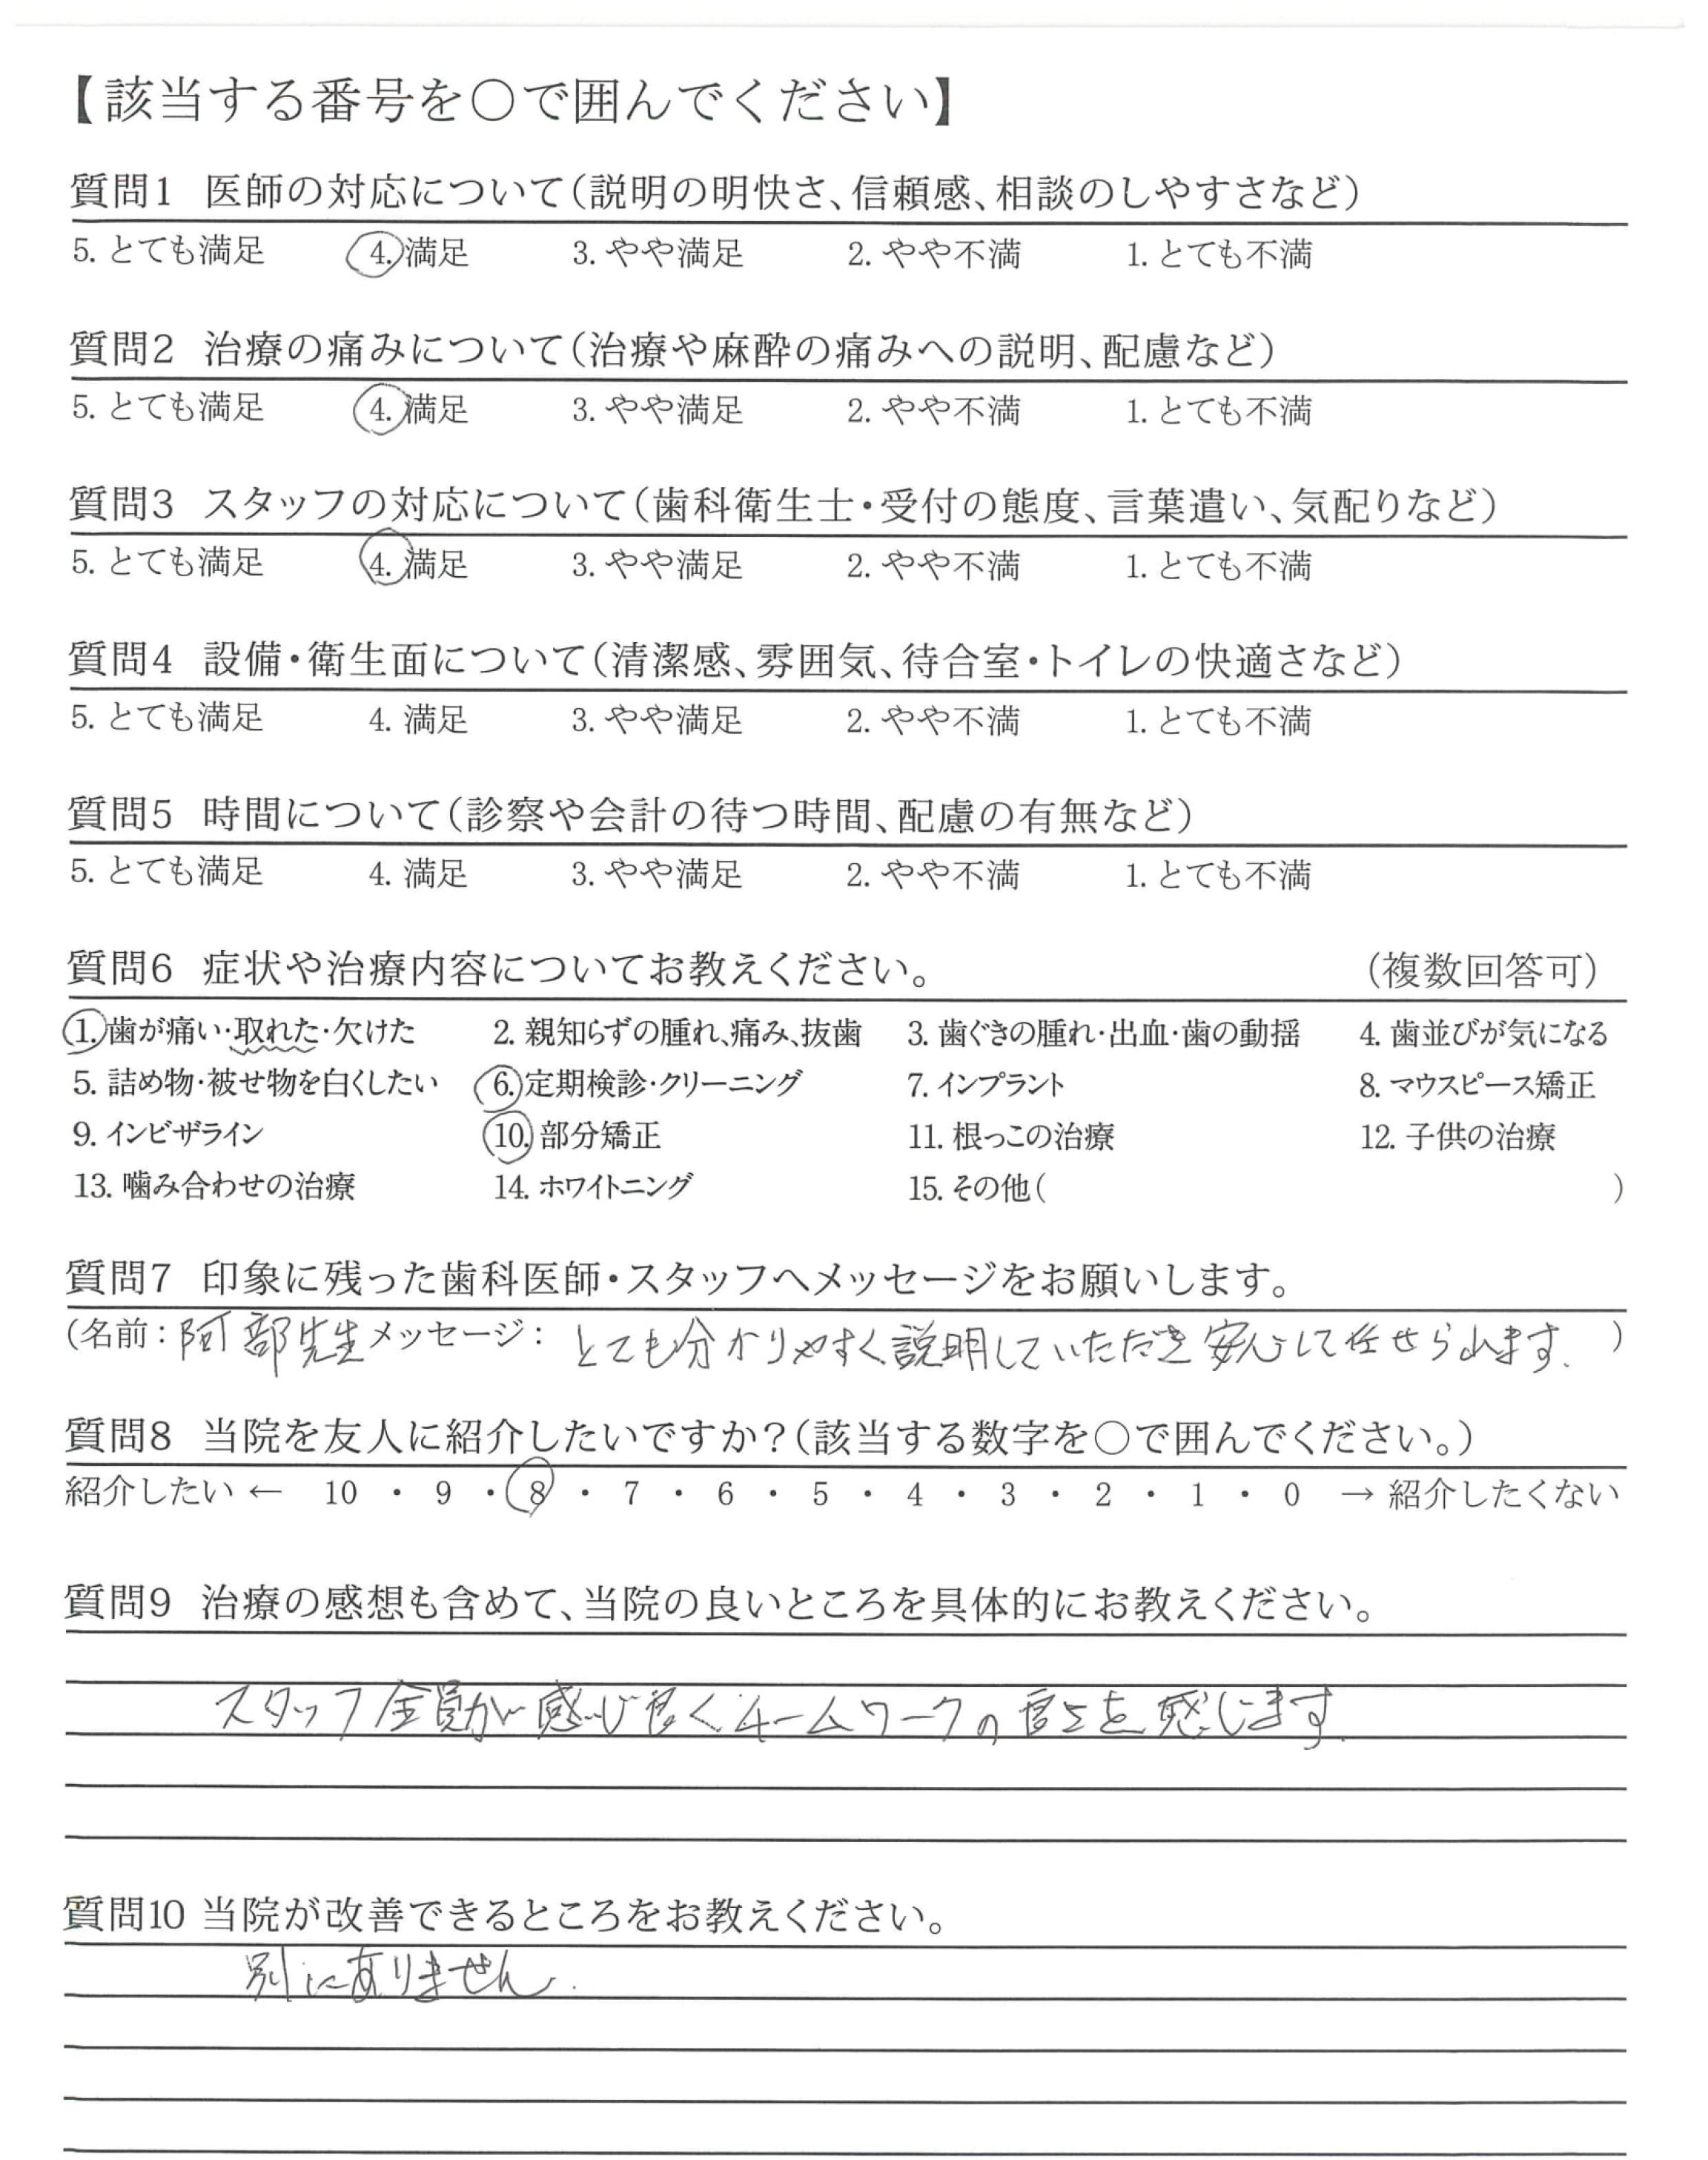 【該当する番号を〇で囲んでください】
質問1 医師の対応について(説明の明快さ、信頼感、相談のしやすさなど)
5. とても満足 4. 満足 3. やや満足 2. やや不満 1. とても不満
質問2 治療の痛みについて(治療や麻酔の痛みへの説明、配慮など)
5. とても満足 4. 満足 3. やや満足 2. やや不満 1. とても不満
質問3 スタッフの対応について(歯科衛生士・受付の態度、言葉遣い、気配りなど)
5. とても満足 4. 満足 3. やや満足 2. やや不満 1. とても不満
質問4 設備・衛生面について(清潔感、雰囲気、待合室・トイレの快適さなど)
5. とても満足 4. 満足 3. やや満足 2. やや不満 1. とても不満
質問5 時間について(診察や会計の待つ時間、配慮の有無など)
5. とても満足 4. 満足 3. やや満足 2. やや不満 1. とても不満
質問6 症状や治療内容についてお教えください。 (複数回答可)
1. 歯が痛い・取れた・欠けた 2. 親知らずの腫れ、痛み、抜歯 3. 歯ぐきの腫れ・出血・歯の動揺 4. 歯並びが気になる
5. 詰め物・被せ物を白くしたい 6. 定期検診・クリーニング 7. インプラント 8. マウスピース矯正
9. インビザライン 10. 部分矯正 11. 根っこの治療 12. 子供の治療
13. 噛み合わせの治療 14. ホワイトニング 15. その他( )
質問7 印象に残った歯科医師・スタッフへメッセージをお願いします。
(名前：阿部先生 メッセージ： とても分かりやすく説明していただき安心して任せられます. )
質問8 当院を友人に紹介したいですか？(該当する数字を〇で囲んでください。)
紹介したい ← 10 ・ 9 ・ 8 ・ 7 ・ 6 ・ 5 ・ 4 ・ 3 ・ 2 ・ 1 ・ 0 → 紹介したくない
質問9 治療の感想も含めて、当院の良いところを具体的にお教えください。
スタッフ全員が感じ良くチームワークの良さを感じます.
質問10 当院が改善できるところをお教えください。
別にありません.